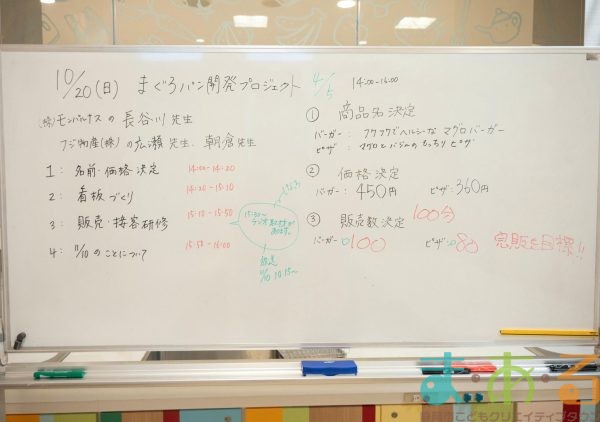 10/20(日) まぐろパン開発プロジェクト 4/5 14:00-16:00
(株)モンパルナスの 長谷川 先生
フジ物産(株)の広瀬 先生、朝倉 先生
1: 名前・価格 決定 14:00-14:20
2: 看板づくり 14:20-15:10
3: 販売・接客研修 15:10-15:50
4: 11/10のことについて 15:50-16:00
15:30~
ラジオ
あります。
放送
10:15~
① 商品名決定
バーガー: フワフワでヘルシーなマグロバーガー
ピザ: マグロとバジルのもっちりピザ
② 価格決定
バーガー: 450円 ピザ: 360円
③ 販売数決定 100分
バーガー 100 ピザ: 80 完販を目標!!
ま・あ・る
静岡市こどもクリエイティブタウン